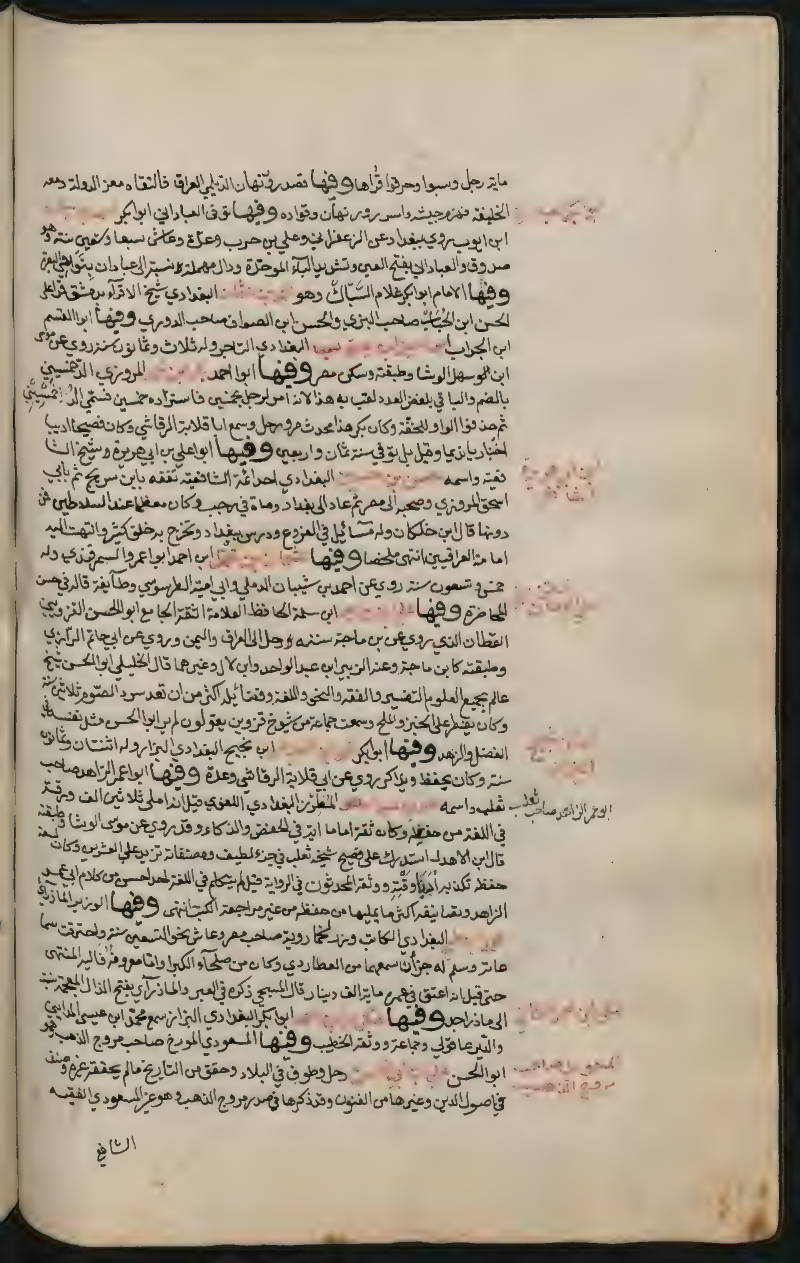 ماية رجل وسبوا وحرقوا قراها وفيها قصد روزبهان الديلمي العراق فالتقاه معز الدولة ومعه
الخليفة فهزم جيشه واسر روزبهان وقواده وفيها توفى العباداني ابوا بكر
ابن ايوب روي ببغداد عن الزعفراني وعلي بن حرب وعدة وعاش سبعا وتسعين سنة وهو
صدوق والعباداني بفتح العين وتشديد الباء الموحدة ودال مهملة نسبة الى عبادان بنواحي البصرة
وفيها الامام ابوا بكر غلام السباك وهو البغدادي شيخ الاقراء بدمشق قرا على
الحسن ابن الحباب صاحب البزي والحسن ابن الصواف صاحب الدوري وفيها ابوا القسم
ابن الجراب البغدادي التاجر وله ثلاث وثمانون سنة روي عن موسى
ابن سهل الوشا وطبقته وسكن مصر وفيها ابوا احمد المروزي الدخمسيني
بالضم والباقي بلفظ العدد لقب به هذا لانه امر لرجل بخمسين فاستزاده خمسين فسمي
ثم حذفوا الواو للخفة وكان بكر هذا محدث مرو رحل وسمع ابا قلابة الرقاشي وكان فصيحا اديبا
اخباريا نديما وقيل بل توفي سنة ثمان واربعين وفيها ابوا علي بن ابي هريرة وشيخ الشا
فعية واسمه البغدادي احد ائمة الشافعية تفقه بابن سريج ثم بابي
اسحق المروزي وصحبه الى مصر ثم عاد الى بغداد ومات في رجب وكان معظما عند السلاطين فمن
دونها قال ابن خلكان وله مسائل في الفروع ودرس ببغداد وتخرج به خلق كثير وانتهت اليه
امامة العراقيين انتهى ملخصا وفيها ابن احمد ابوا عمرو السمرقندي وله
خمس وتسعون سنة روي عن احمد بن شيبان الرملي وابي امية الطرسوسي وطائفة قال في حسن
المحاضرة وفيها ابن سلمة الحافظ العلامة الثقة الجامع ابوا الحسن القزويني
القطان الذي روي عن بن ماجة سننه ورحل الى العراق واليمن وروي عن ابي حاتم الرازي
وطبقته كابن ماجة وعنه الزبير ابن عبد الواحد وابن لال وغيرهما قال الخليلي ابوا الحسن شيخ
عالم بجميع العلوم التفسير والفقه والنحو واللغة وفضائله اكثر من ان تعد سرد الصوم ثلاثين سنة
وكان يفطر على الخبز والملح وسمعت جماعة من شيوخ قزوين يقولون لم ير ابوا الحسن مثل نفسه في
الفضل والزهد وفيها ابوا بكر ابن نجيح البغدادي البزاز وله اثنتان وثمانون
سنة وكان يحفظ ويذاكر روي عن ابي قلابة الرقاشي وعدة وفيها ابوا عمر الزاهد صاحب
ثعلب واسمه المطرز البغدادي اللغوي قيل انه املى ثلاثين الف ورقة
في اللغة من حفظه وكان ثقة اماما اية في الحفظ والذكاء وقد روي عن موسى الوشا وطبقته
قال ابن الاهدل استدرك على فصيح شيخه ثعلب في جزء لطيف ومصنفاته تزيد على العشرين وكان لسعة
حفظه تكذبه ادباء وقته ووثقه المحدثون في الرواية قيل لم يتكلم في اللغة احد احسن من كلام ابي عمر
الزاهد وتصانيفه اكثر ما يمليها من حفظه من غير مراجعة الكتب انتهى وفيها الوزير الماذراي
البغدادي الكاتب وزر لخمارويه صاحب مصر وعاش نحو التسعين سنة واحترقت سما
عاته وسلم له جزءان سمعهما من العطاردي وكان من صلحاء الكبرا واما معروفه فاليه المنتهى
حتى قيل انه اعتق في عمره ماية الف دينار قال المسبحي ذكره في العبر والماذراي بفتح الذال المعجمة نسبة
الى ماذرا جد وفيها ابوا بكر البغدادي البزاز سمع محمد ابن عيسى المدايني
والدير عاقولي وجماعة ووثقه الخطيب وفيها المسعودي المورخ صاحب مروج الذهب وهو
ابوا الحسن رحل وطوف في البلاد وحقق من التاريخ ما لم يحققه غيره وصنف
في اصول الدين وغيرها من الفنون وقد ذكرها في صدر مروج الذهب وهو غير المسعودي الفقيه
الشافعي
ابن ابي هريرة
ابو عمر الزاهد صاحب ثعلب
المسعودي صاحب
مروج الذهب